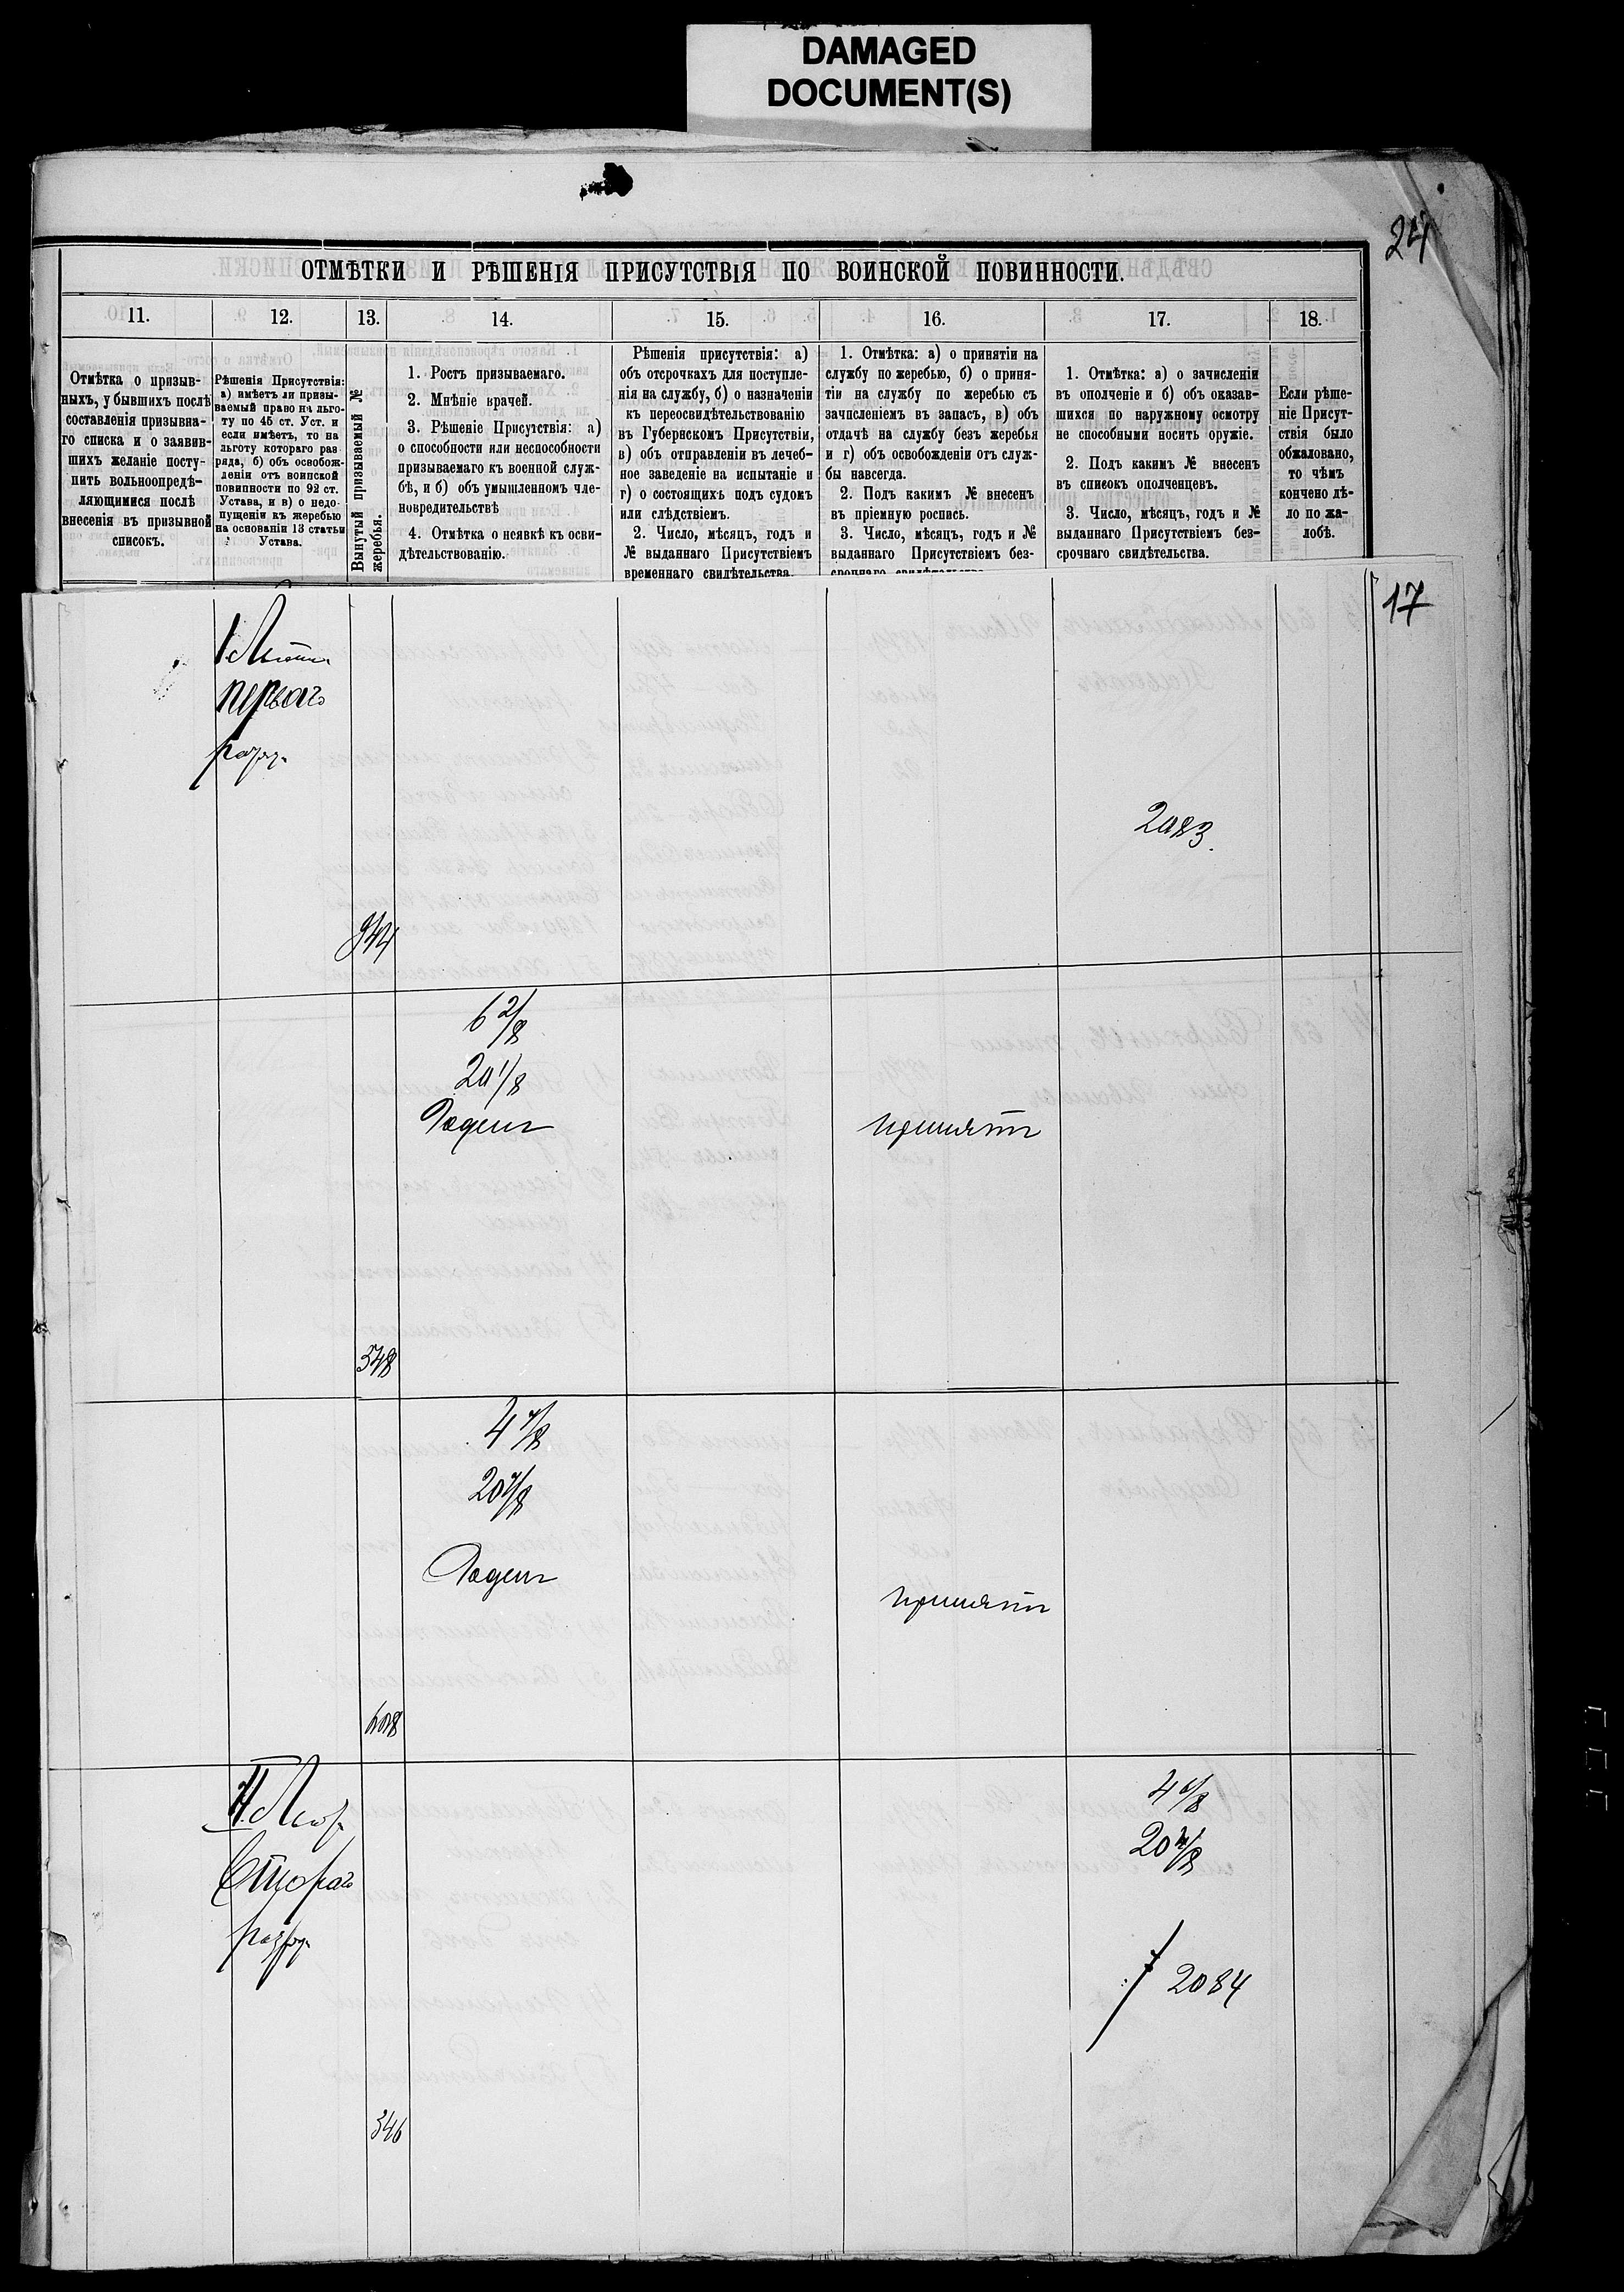 DAMAGED
DOCUMENT(S)
24
ОТМѢТКИ И РѢШЕНІЯ ПРИСУТСТВІЯ ПО ВОИНСКОЙ ПОВИННОСТИ.
11.
12.
13.
14.
15.
16.
17.
18.
Отмѣтка о призыв-
ныхъ, у бывшихъ послѣ
составленія призывна-
го списка и о заявив-
шихъ желаніе посту-
пить вольноопредѣ-
ляющимися послѣ
внесенія въ призывной
списокъ.
Рѣшенія Присутствія:
а) имѣетъ ли призы-
ваемый право на льго-
ту по 45 ст. Уст. и
если имѣетъ, то на
льготу котораго раз
ряда, б) объ освобож-
деніи отъ воинской
повинности по 92 ст.
Устава, и в) о недо-
пущеніи къ жеребью
на основаніи 13 статьи
Устава.
Вынутый призываемый №
жеребья.
1. Ростъ призываемаго.
2. Мнѣніе врачей.
3. Рѣшеніе Присутствія: а)
о способности или неспособности
призываемаго къ военной служ-
бѣ, и б) объ умышленномъ чле-
новредительствѣ
4. Отмѣтка о неявкѣ къ осви-
дѣтельствованію.
Рѣшенія присутствія: а)
объ отсрочкахъ для поступле-
нія на службу, б) о назначеніи
къ переосвидѣтельствованію
въ Губернскомъ Присутствіи,
в) объ отправленіи въ лечеб-
ное заведеніе на испытаніе и
г) о состоящихъ подъ судомъ
или слѣдствіемъ.
2. Число, мѣсяцъ, годъ и
№ выданнаго Присутствіемъ
временнаго свидѣтельства.
1. Отмѣтка: а) о принятіи на
службу по жеребью, б) о приня-
тіи на службу по жеребью съ
зачисленіемъ въ запасъ, в) объ
отдачѣ на службу безъ жеребья
и г) объ освобожденіи отъ служ-
бы навсегда.
2. Подъ какимъ № внесенъ
въ пріемную роспись.
3. Число, мѣсяцъ, годъ и №
выданнаго Присутствіемъ без-
срочнаго свидѣтельства.
1. Отмѣтка: а) о зачисленіи
въ ополченіе и б) объ оказав-
шихся по наружному осмотру
не способными носить оружіе.
2. Подъ какимъ № внесенъ
въ списокъ ополченцевъ.
3. Число, мѣсяцъ, годъ и №
выданнаго Присутствіемъ без-
срочнаго свидѣтельства.
Если рѣше-
ніе Присут-
ствія было
обжаловано,
то чѣмъ
кончено дѣ-
ло по жа-
лобѣ.
17
перваго
разр.
2083.
944
6 2/8
20 1/8
Годенъ
принятъ
548
4 7/8
20 7/8
Годенъ
принятъ
608
Втораго
разр.
4 6/8
20 4/8
2084
346